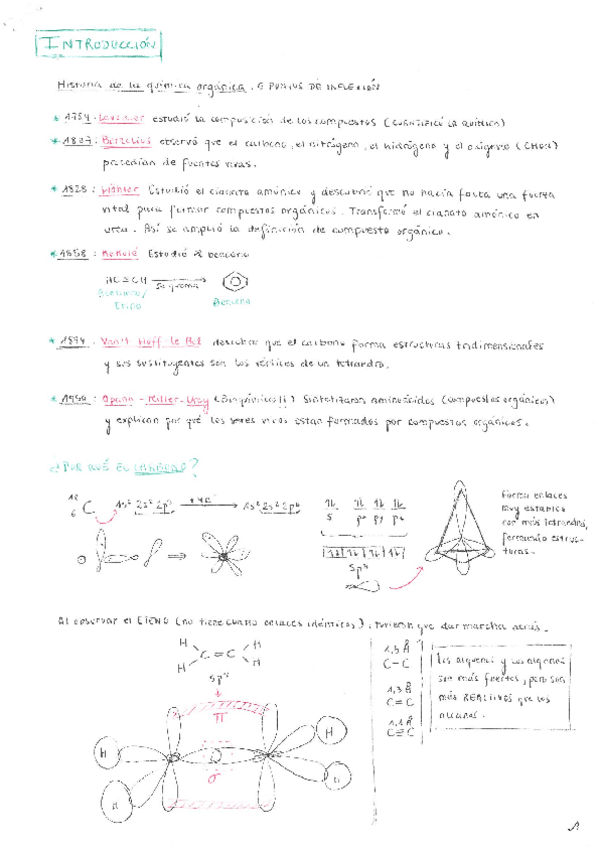 INTRODUCCIÓN
Historia de la química orgánica. 6 PUNTOS DE INFLEXIÓN
* 1784: Lavoisier estudió la composición de los compuestos (CUANTIFICÓ LA QUÍMICA)
* 1807: Berzelius observó que el carbono, el nitrógeno, el hidrógeno y el oxígeno (CHON)
procedían de fuentes vivas.
* 1828: Wöhler Estudió el cianato amónico y descubrió que no hacía falta una fuerza
vital para formar compuestos orgánicos. Transformó el cianato amónico en
urea. Así se amplió la definición de compuesto orgánico.
* 1858: Estudió el benceno
HC≡CH
Etino
Benceno
* Van't Hoff-le Bel descubren que el carbono forma estructuras tridimensionales
y sus sustituyentes son los vértices de un tetraedro.
* Miller-Urey Sintetizaron aminoácidos (compuestos orgánicos)
y explican por qué los seres vivos están formados por compuestos orgánicos.
¿POR QUÉ EL CARBONO?
12 6 C 1s² 2s² 2p² 1s² 2s² 2p⁶
S px py pz
sp³
Forma enlaces
muy estables
con más tetraedros,
formando estruc-
turas.
Al observar el ETENO (no tiene cuatro enlaces idénticos), tuvieron que dar marcha atrás.
H H
C=C
H H
sp²
π
σ
H H
H H
1,5 Å
C-C
1,3 Å
C=C
C≡C
Los alquenos y los alquinos
son más fuertes, pero son
más REACTIVOS que los
alcanos.
1